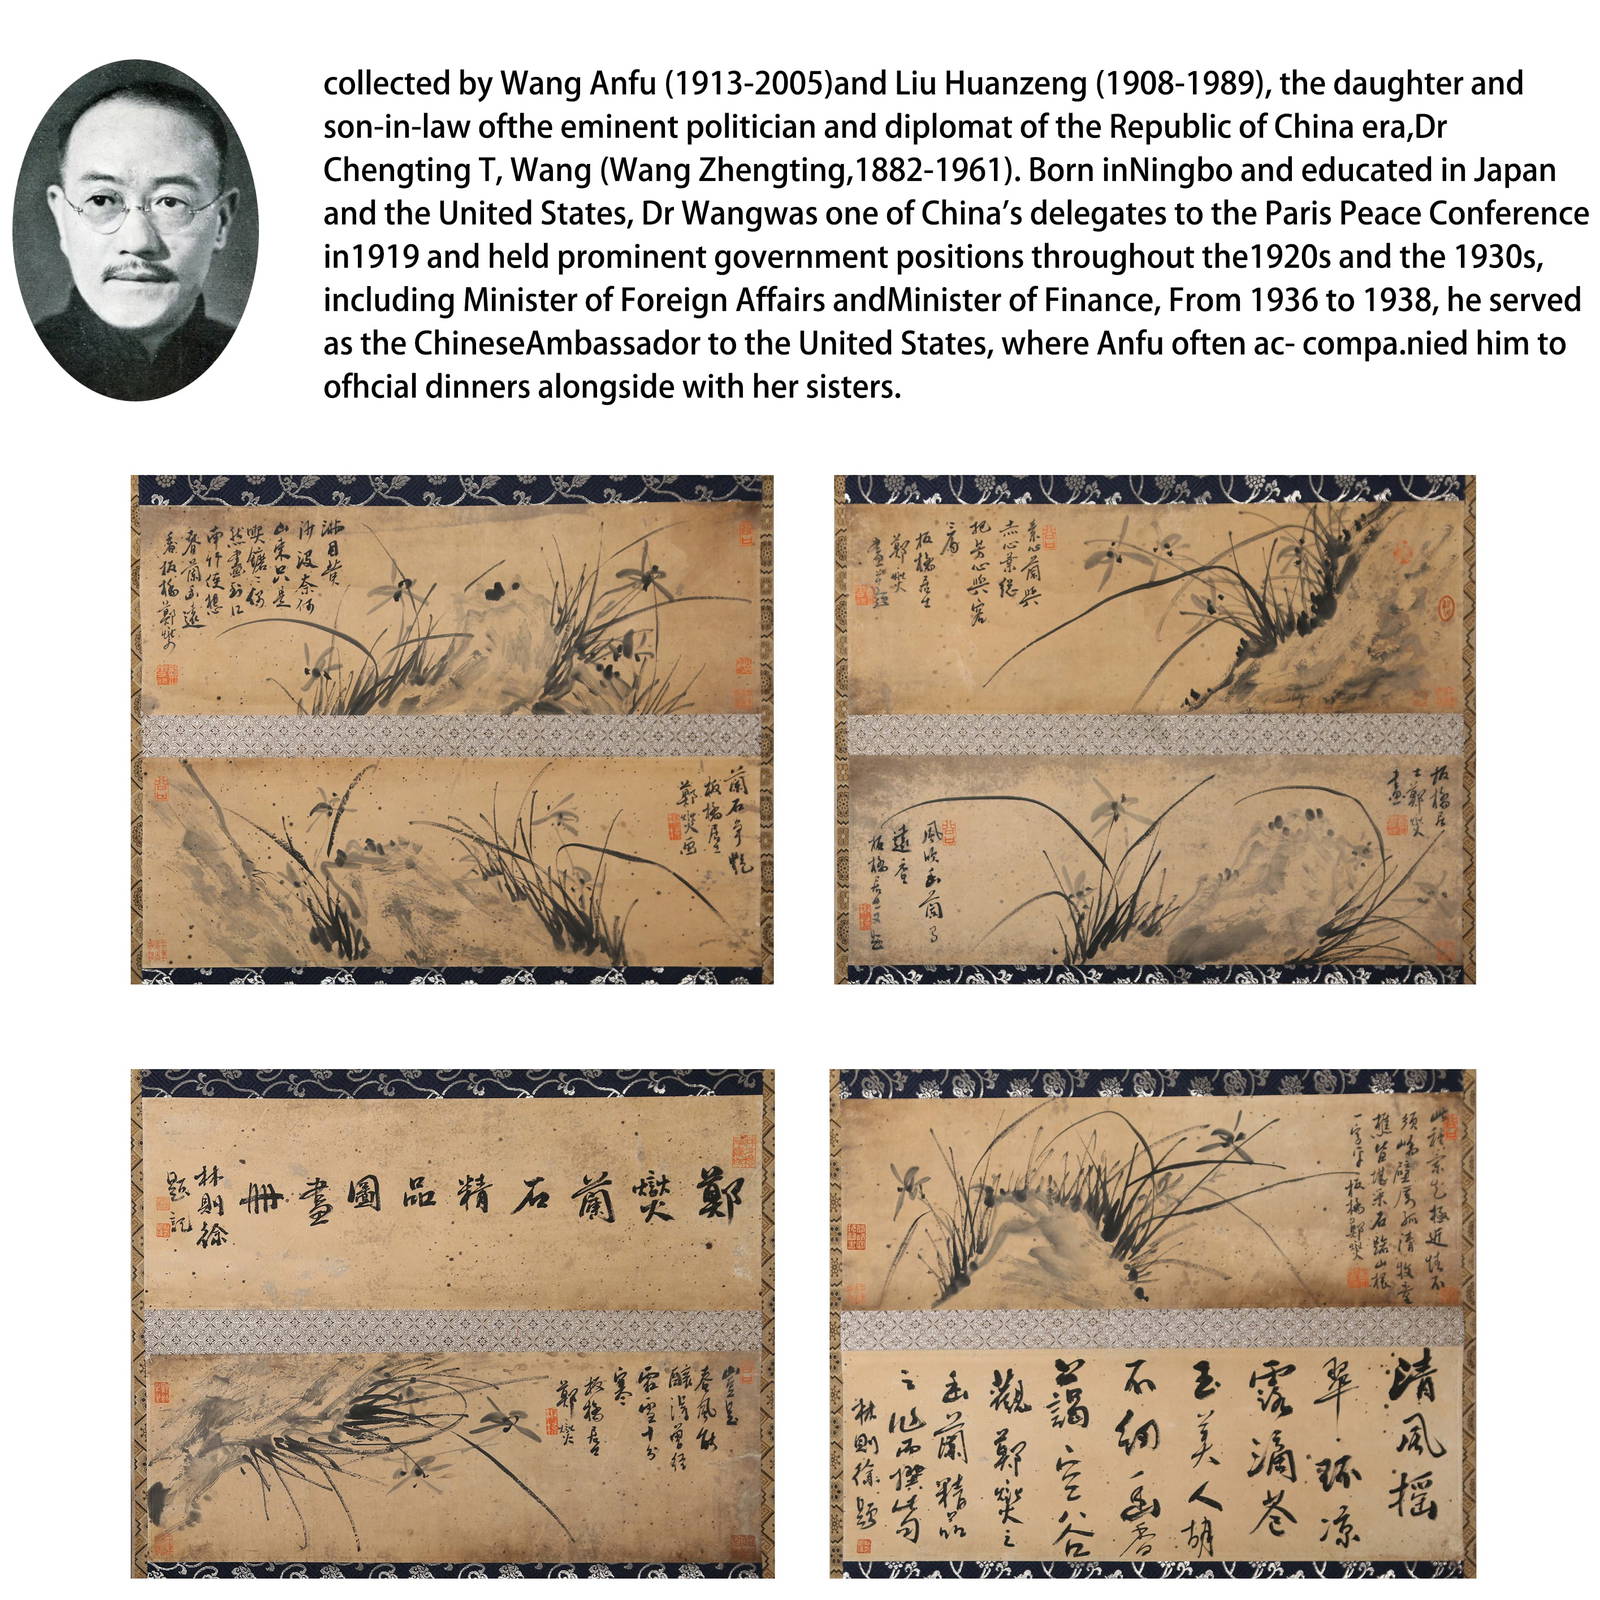 collected by Wang Anfu (1913-2005)and Liu Huanzeng (1908-1989), the daughter and
son-in-law ofthe eminent politician and diplomat of the Republic of China era,Dr
Chengting T, Wang (Wang Zhengting,1882-1961). Born inNingbo and educated in Japan
and the United States, Dr Wangwas one of China’s delegates to the Paris Peace Conference
in1919 and held prominent government positions throughout the1920s and the 1930s,
including Minister of Foreign Affairs andMinister of Finance, From 1936 to 1938, he served
as the ChineseAmbassador to the United States, where Anfu often ac- compa.nied him to
ofhcial dinners alongside with her sisters.
南竹便想
春板橋鄭燮
素心蘭與
赤心葉總
把芳心與客
板橋居士
鄭燮
畫並題
蘭石爭艷
板橋居士
鄭燮畫
板橋居
士鄭燮
畫
風吹幽蘭
遠香
鄭燮蘭石精品圖畫冊
林則徐
題記
一寫字板橋鄭燮
豈是
春風能
釀得曾經
霜雪十分
寒
板橋居士
鄭燮
清風搖
翠環涼
露滴蒼
玉美人胡
不紉幽香
空谷
觀鄭燮之
幽蘭精品
林則徐題